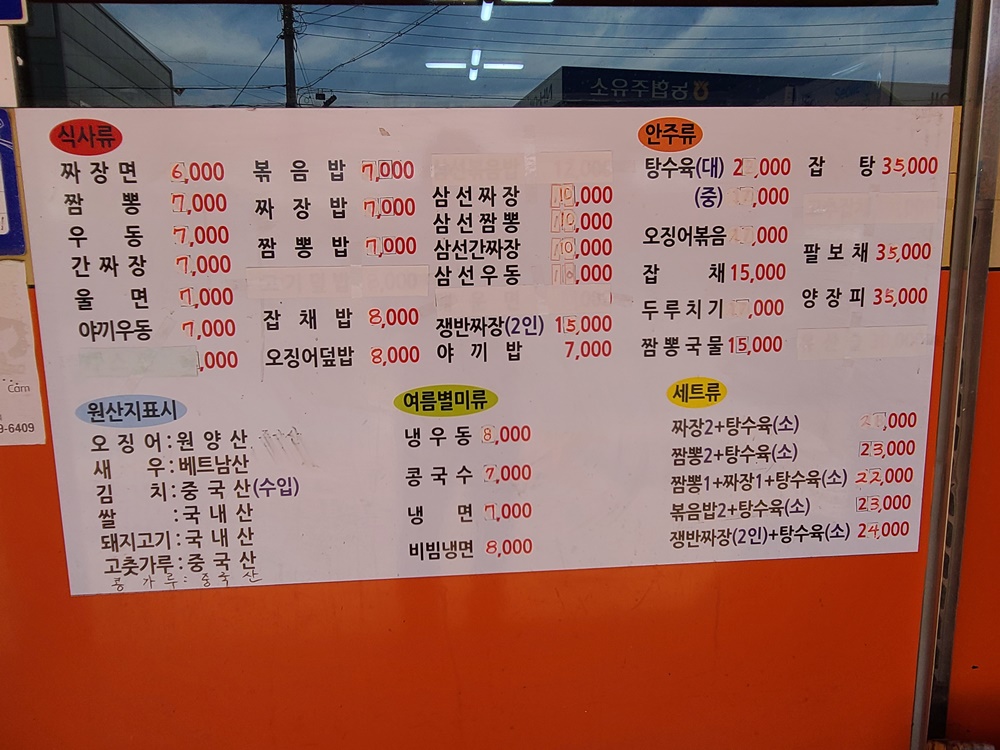 농협주유소
식사류
짜장면 6,000
짬뽕 7,000
우동 7,000
간짜장 7,000
울면 7,000
야끼우동 7,000
,000
볶음밥 7,000
짜장밥 7,000
짬뽕밥 7,000
잡채밥 8,000
오징어덮밥 8,000
삼선짜장 10,000
삼선짬뽕 10,000
삼선간짜장 10,000
삼선우동 10,000
쟁반짜장(2인) 15,000
야끼밥 7,000
안주류
탕수육(대) ,000
(中) ,000
오징어볶음 ,000
잡채 15,000
두루치기 ,000
짬뽕국물 15,000
잡탕 35,000
팔보채 35,000
양장피 35,000
원산지표시
오징어:원양산
새우:베트남산
김치:중국산(수입)
쌀:국내산
돼지고기:국내산
고춧가루:중국산
콩가루:중국산
여름별미류
냉우동 8,000
콩국수 7,000
냉면 7,000
비빔냉면 8,000
세트류
짜장2+탕수육(소) ,000
짬뽕2+탕수육(소) 23,000
짬뽕1+짜장1+탕수육(소) 22,000
볶음밥2+탕수육(소) 23,000
쟁반짜장(2인)+탕수육(소) 24,000
Cam
9-6409